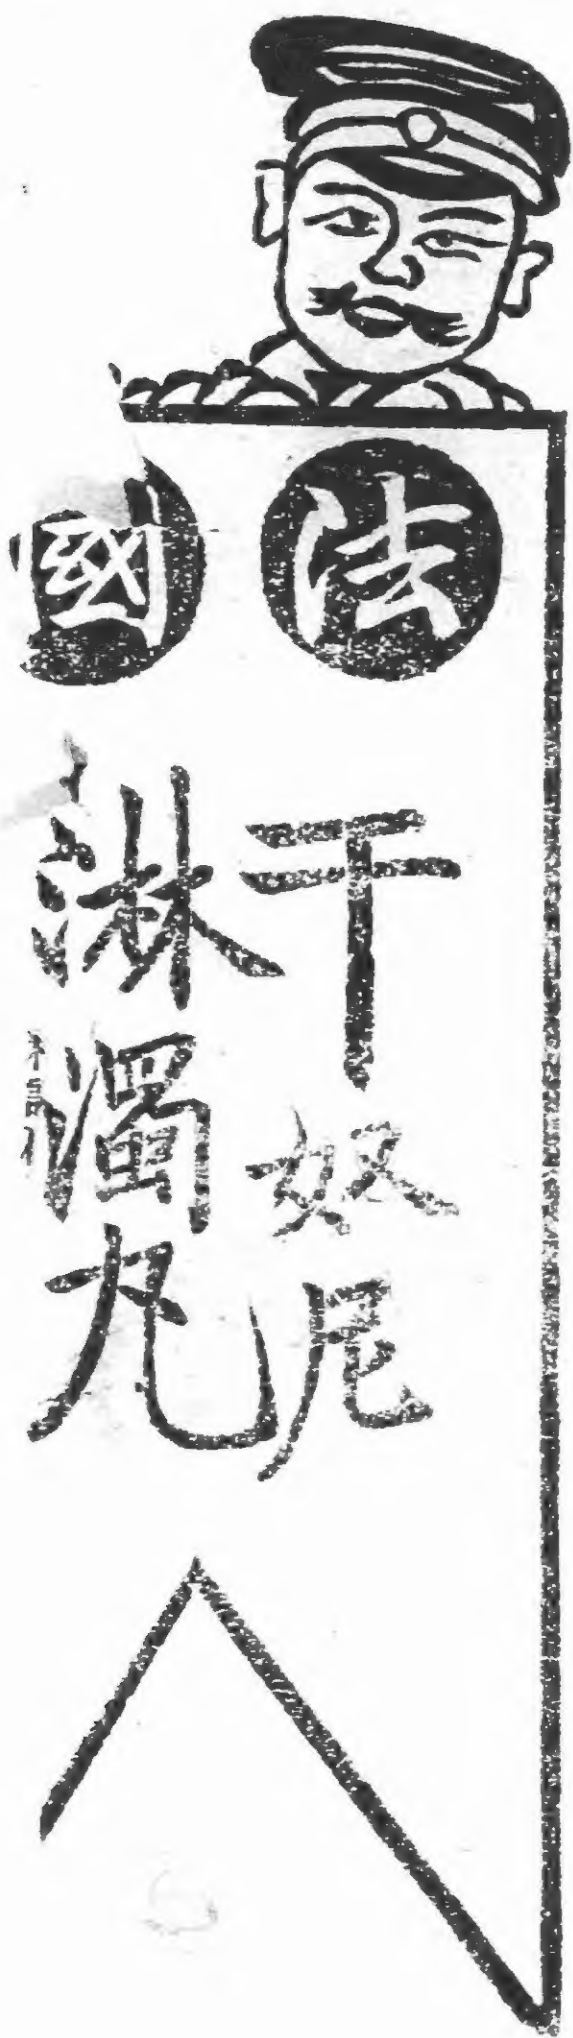 法國
干奴尼
淋濁丸